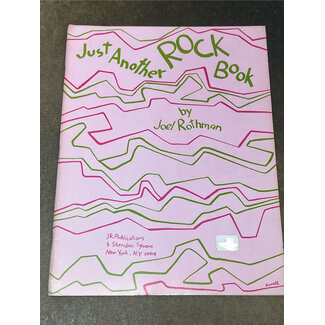 Just Another ROCK Book
by
Joel Rothman
JR Publications
3 Sheridan Square
New York, NY 10014